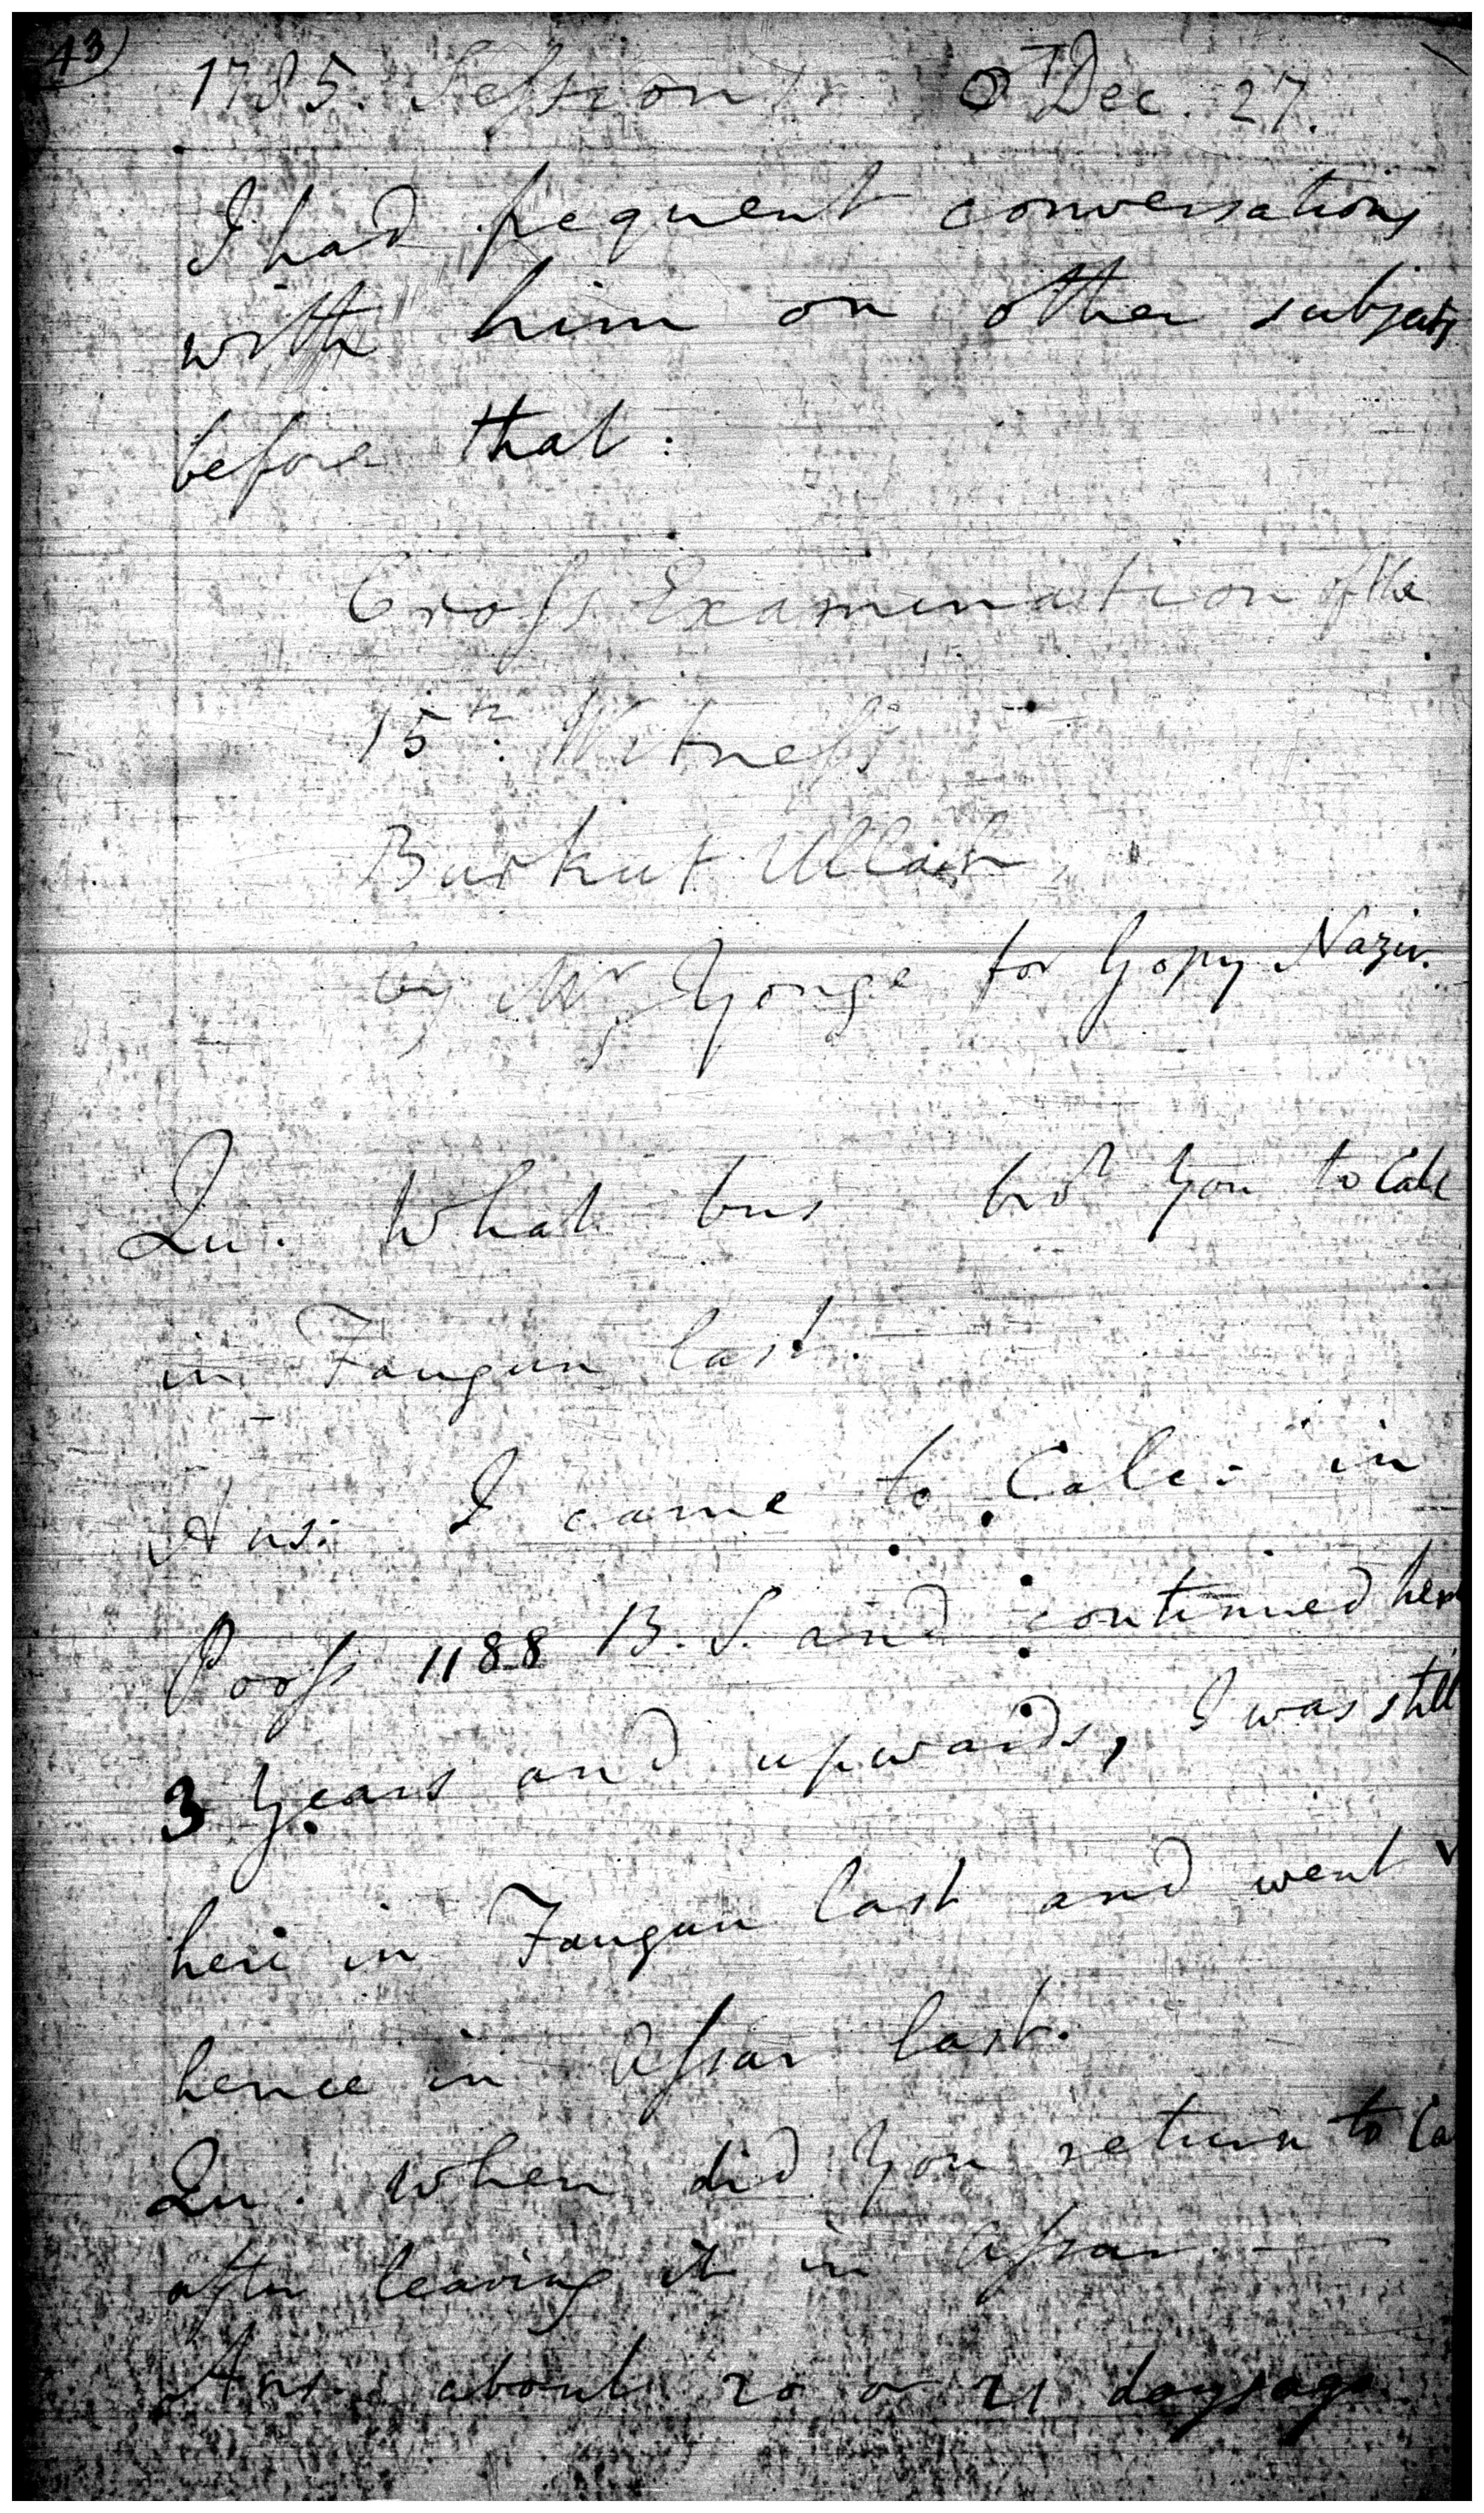 43)
1785. Sessions. ♂ Dec. 27.
I had frequent conversations
with him on other subjects
before that.
Cross Examination of the
15th. Witness
Burkut Ullah,
by Mr Yonge for Gopy Nazir.
Qu. What bus brot you to Calc
in Faugun last.
Ans: I came to Calc: in
Pooss 1188 B. S. and continued here
3 Years and upwards, I was still
here in Faugun last and went
hence in Assar last.
Qu. When did you return to Ca
after leaving it in Assar. —
Ans. about 20 or 21 days ago